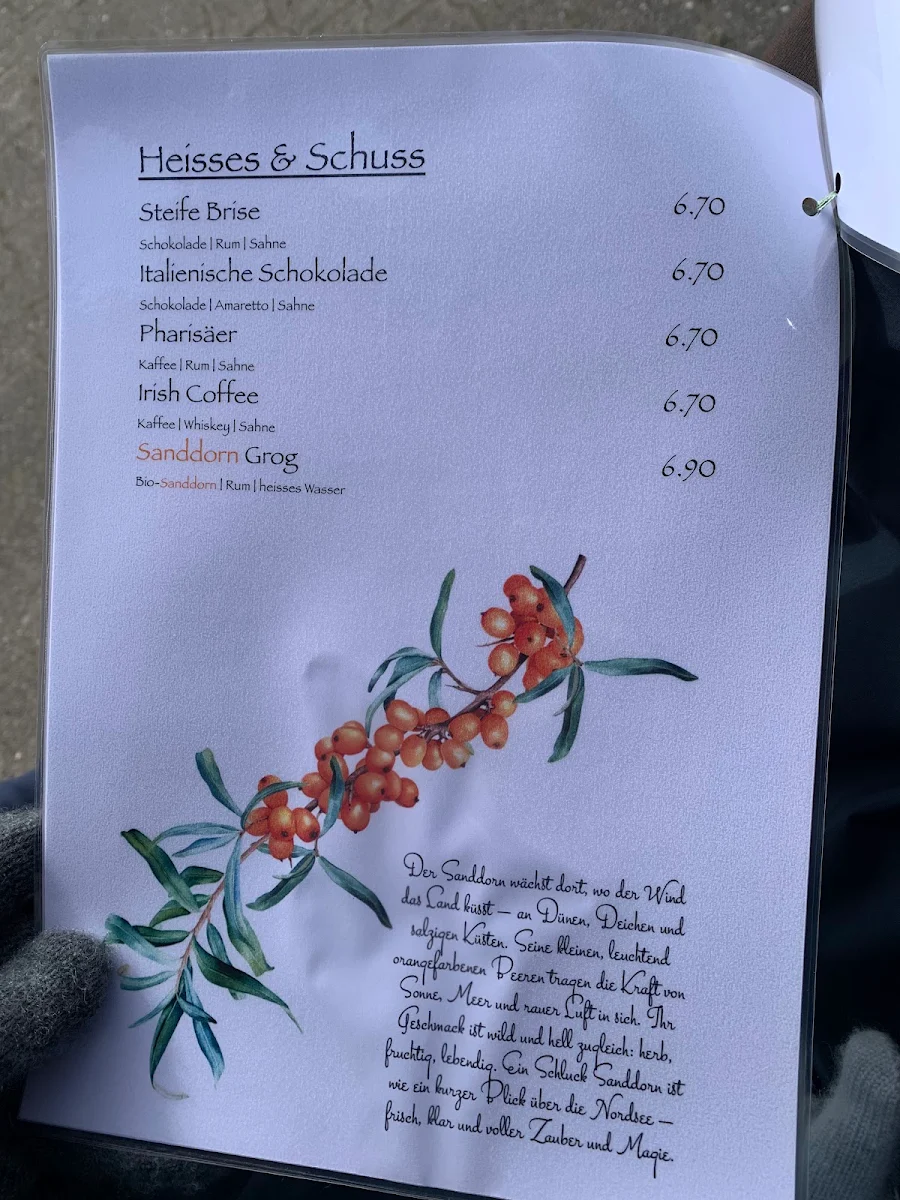 Heisses & Schuss
Steife Brise 6.70
Schokolade | Rum | Sahne
Italienische Schokolade 6.70
Schokolade | Amaretto | Sahne
Pharisäer 6.70
Kaffee | Rum | Sahne
Irish Coffee 6.70
Kaffee | Whiskey | Sahne
Sanddorn Grog 6.90
Bio-Sanddorn | Rum | heisses Wasser
Der Sanddorn wächst dort, wo der Wind
das Land küsst – an Dünen, Deichen und
salzigen Küsten. Seine kleinen, leuchtend
orangefarbenen Beeren tragen die Kraft von
Sonne, Meer und rauer Luft in sich. Ihr
Geschmack ist wild und hell zugleich: herb,
fruchtig, lebendig. Ein Schluck Sanddorn ist
wie ein kurzer Blick über die Nordsee –
frisch, klar und voller Zauber und Magie.